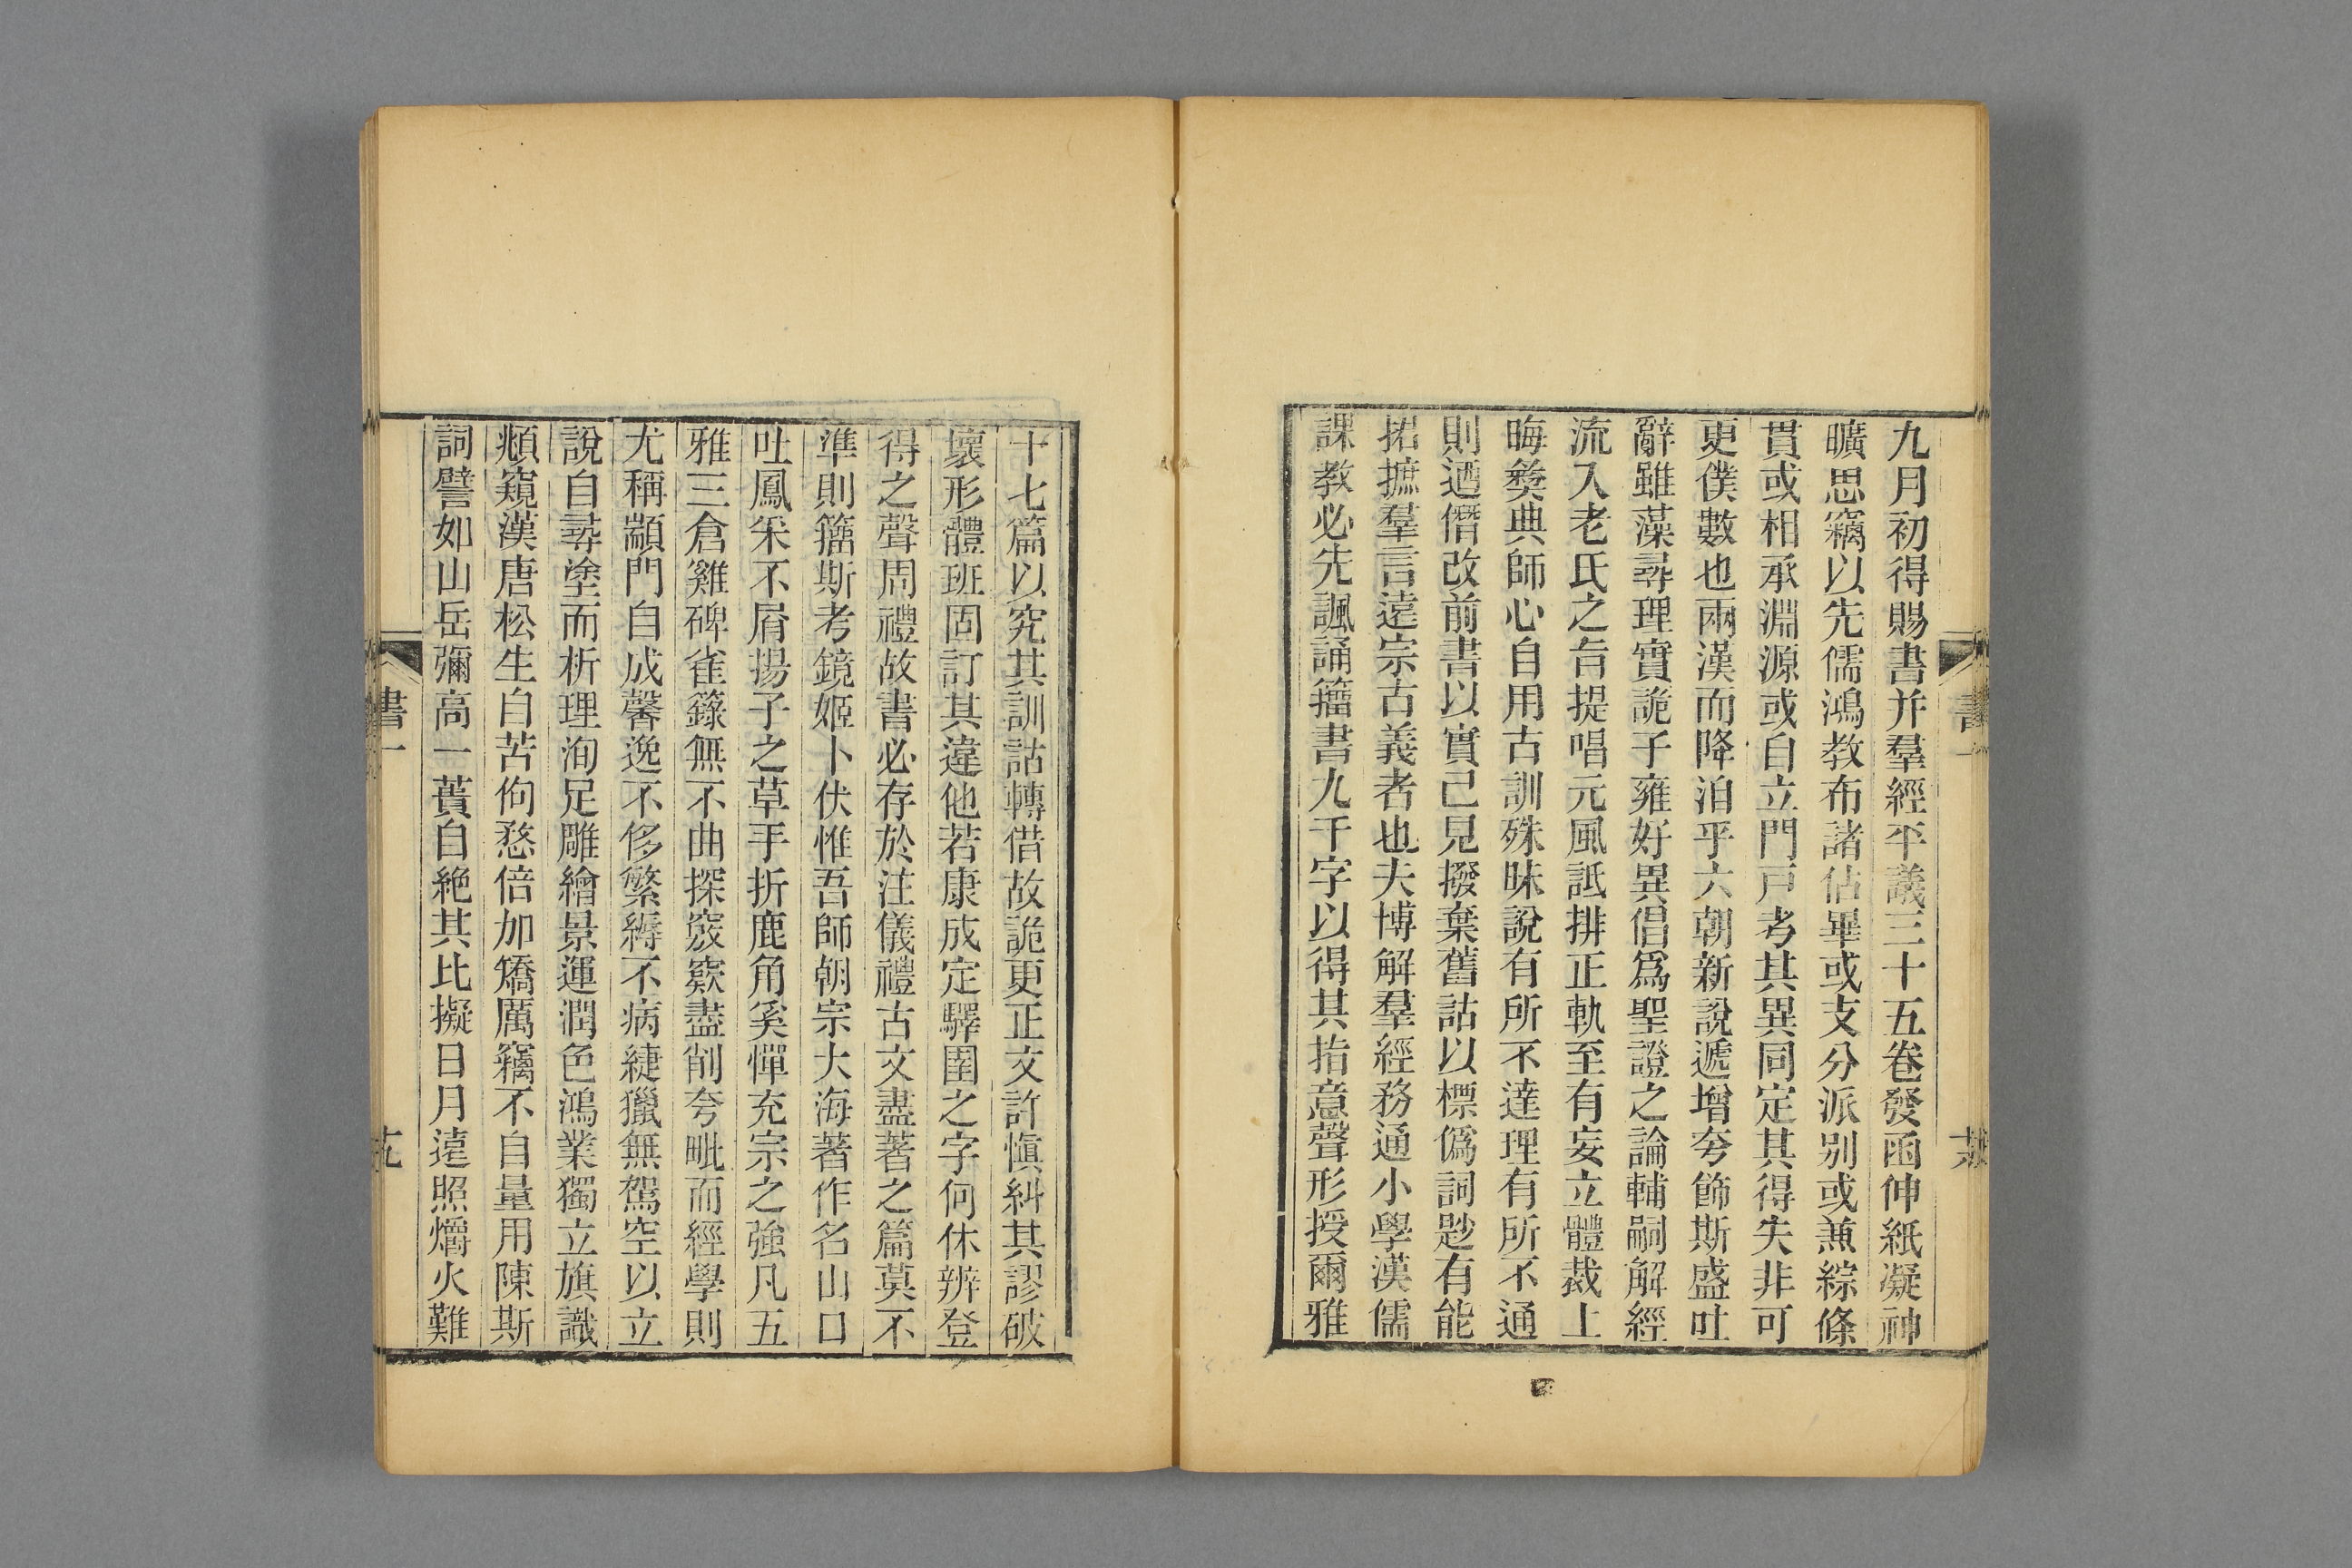 九月初得賜書并羣經平議三十五卷發函伸紙凝神
曠思竊以先儒鴻教布諸佔畢或支分派别或兼綜條
貫或相承淵源或自立門戸考其異同定其得失非可
更僕數也兩漢而降洎乎六朝新說遞增夸飾斯盛吐
辭雖藻尋理實詭子雍好異倡爲聖證之論輔嗣解經
流入老氏之旨提唱元風詆排正軌至有妄立體裁上
晦彜典師心自用古訓殊昧說有所不達理有所不通
則迺僭改前書以實己見撥棄舊詁以標僞詞尟有能
捃摭羣言遠宗古義者也夫博解羣經務通小學漢儒
課教必先諷誦籀書九千字以得其指意聲形授爾雅
書一
十七篇以究其訓詁轉借故詭更正文許愼糾其謬破
壞形體班固訂其違他若康成定驛圛之字何休辨登
得之聲周禮故書必存於注儀禮古文盡著之篇莫不
準則籀斯考鏡姬卜伏惟吾師朝宗大海著作名山口
吐鳳采不屑揚子之草手折鹿角奚憚充宗之強凡五
雅三倉雞碑雀籙無不曲探窔窾盡削夸毗而經學則
尤稱顓門自成馨逸不侈繁縟不病緁獵無駕空以立
說自尋塗而析理洵足雕繪景運潤色鴻業獨立旗識
頫窺漢唐松生自苦佝愗倍加矯厲竊不自量用陳斯
詞譬如山岳彌高一蕢自絶其比擬日月遠照爝火難
書一